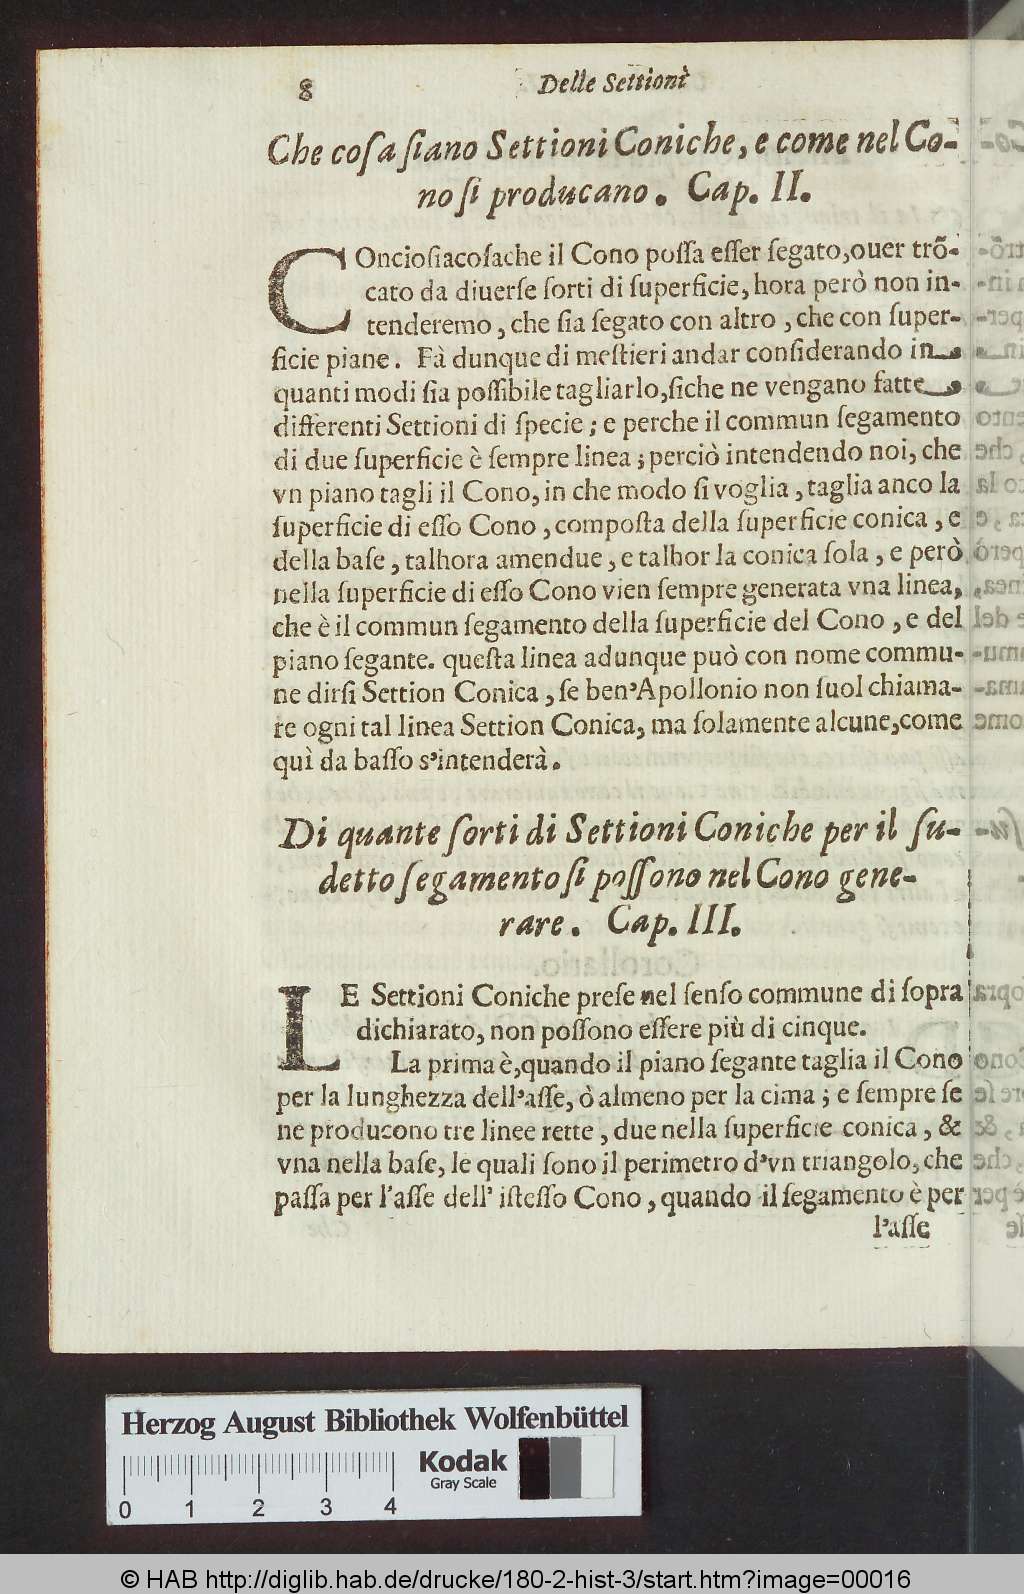 8
Delle Settioni
Che coſa ſiano Settioni Coniche, e come nel Co-
no ſi producano. Cap. II.
COncioſiacoſache il Cono poſſa eſſer ſegato, ouer trõ-
cato da diuerſe ſorti di ſuperficie, hora però non in-
tenderemo, che ſia ſegato con altro, che con ſuper-
ficie piane. Fà dunque di meſtieri andar conſiderando in
quanti modi ſia poſſibile tagliarlo, ſiche ne vengano fatte
differenti Settioni di ſpecie; e perche il commun ſegamento
di due ſuperficie è ſempre linea; perciò intendendo noi, che
vn piano tagli il Cono, in che modo ſi voglia, taglia anco la
ſuperficie di eſſo Cono, compoſta della ſuperficie conica, e
della baſe, talhora amendue, e talhor la conica ſola, e però
nella ſuperficie di eſſo Cono vien ſempre generata vna linea,
che è il commun ſegamento della ſuperficie del Cono, e del
piano ſegante. queſta linea adunque può con nome commu-
ne dirſi Settion Conica, ſe ben'Apollonio non ſuol chiama-
re ogni tal linea Settion Conica, ma ſolamente alcune, come
quì da baſſo s'intenderà.
Di quante ſorti di Settioni Coniche per il ſu-
detto ſegamento ſi poſſono nel Cono gene-
rare. Cap. III.
LE Settioni Coniche preſe nel ſenſo commune di ſopra
dichiarato, non poſſono eſſere più di cinque.
La prima è, quando il piano ſegante taglia il Cono
per la lunghezza dell'aſſe, ò almeno per la cima; e ſempre ſe
ne producono tre linee rette, due nella ſuperficie conica, &
vna nella baſe, le quali ſono il perimetro d'vn triangolo, che
paſſa per l'aſſe dell' iſteſſo Cono, quando il ſegamento è per
l'aſſe
Herzog August Bibliothek Wolfenbüttel
Kodak
Gray Scale
0 1 2 3 4
© HAB http://diglib.hab.de/drucke/180-2-hist-3/start.htm?image=00016